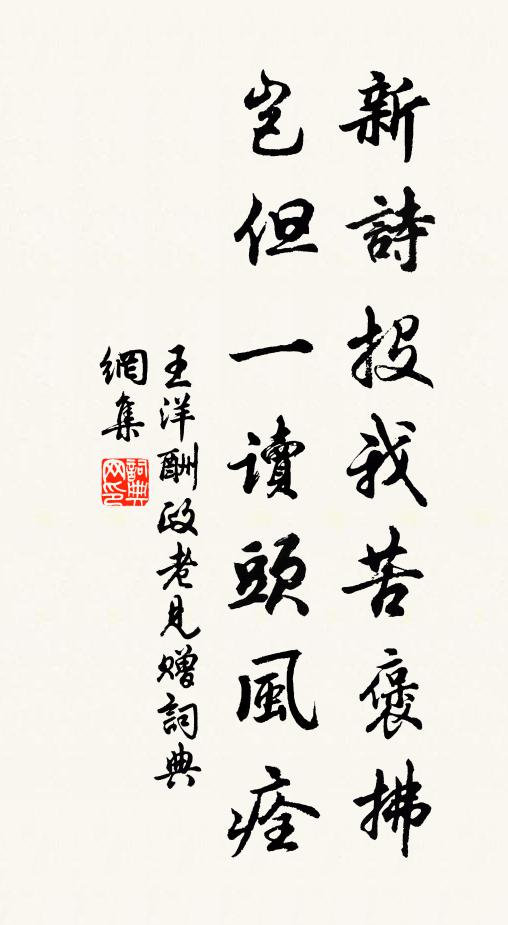 新詩投我苦褒拂
豈但一讀頭風痊
王洋酬政老見贈詞典
網集
詞典網印